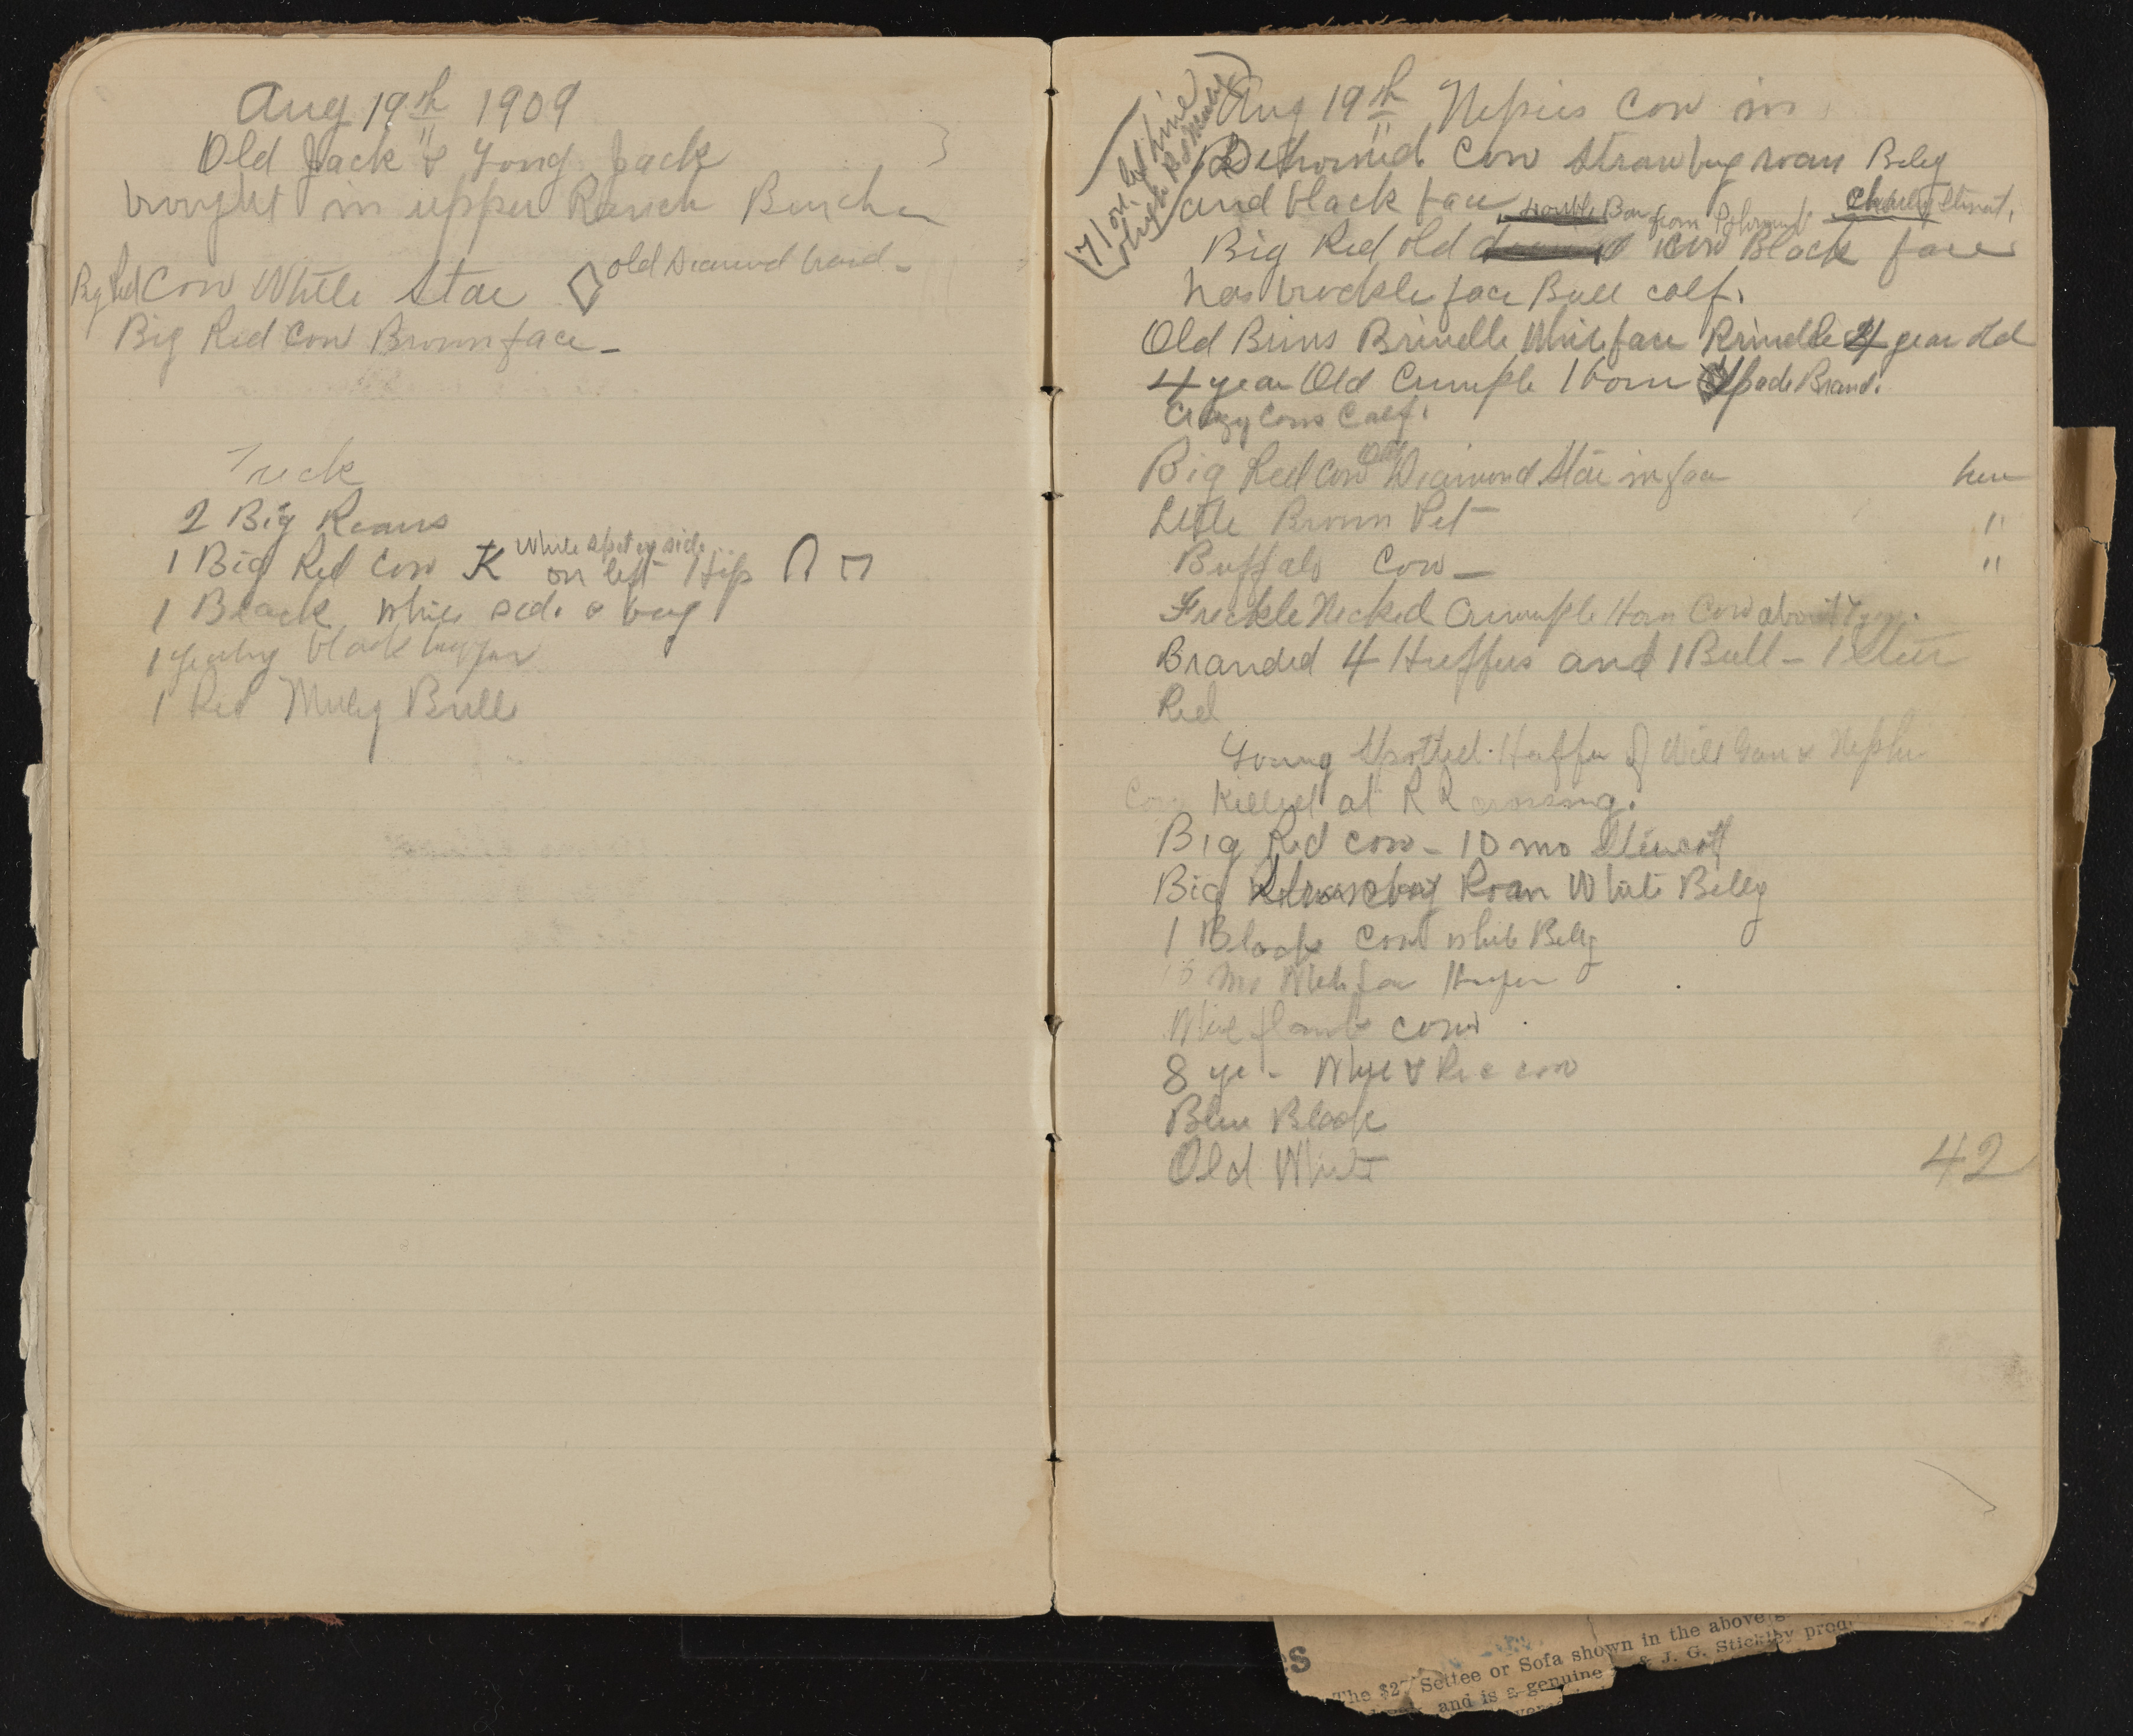 Aug 19th 1909
Old Jack & Yong Jack
brought in upper Ranch Bunch
Big Red Cow White Star old Diamond brand -
Big Red Cow Brown face -
2 Big Roans
1 Big Red Cow K White spot on side on left Hip
1 Black White side &
1 yearling black
1 Red Muley Bull
Aug 19th Cow in
Dehorned Cow Strawbuy roan Bely
and black face Bar from
Big Red old Cow Black face
has brockle face Bull calf.
Old Brins Brindle White face Brindle 4 year old
4 year Old Crumple Horn Spade Brand.
Crazy Cows Calf.
Big Red Cow Old Diamond Star in face here
Little Brown Pet "
Buffalo Cow - "
Freckle Necked Crumple Horn Cow about 7
Branded 4 Huffers and 1 Bull - 1 Steer
Red
Young Spotted Huffer of Will
Cow Killed at RR crossing.
Big Red cow - 10 mo
Big Roan White Belly
1 Black Cow white Belly
mo
cow
8 yr - White & Red cow
Blue Black
Old White 42
The $27 Settee or Sofa shown in the above
and is a genuine & J. G. Stickley